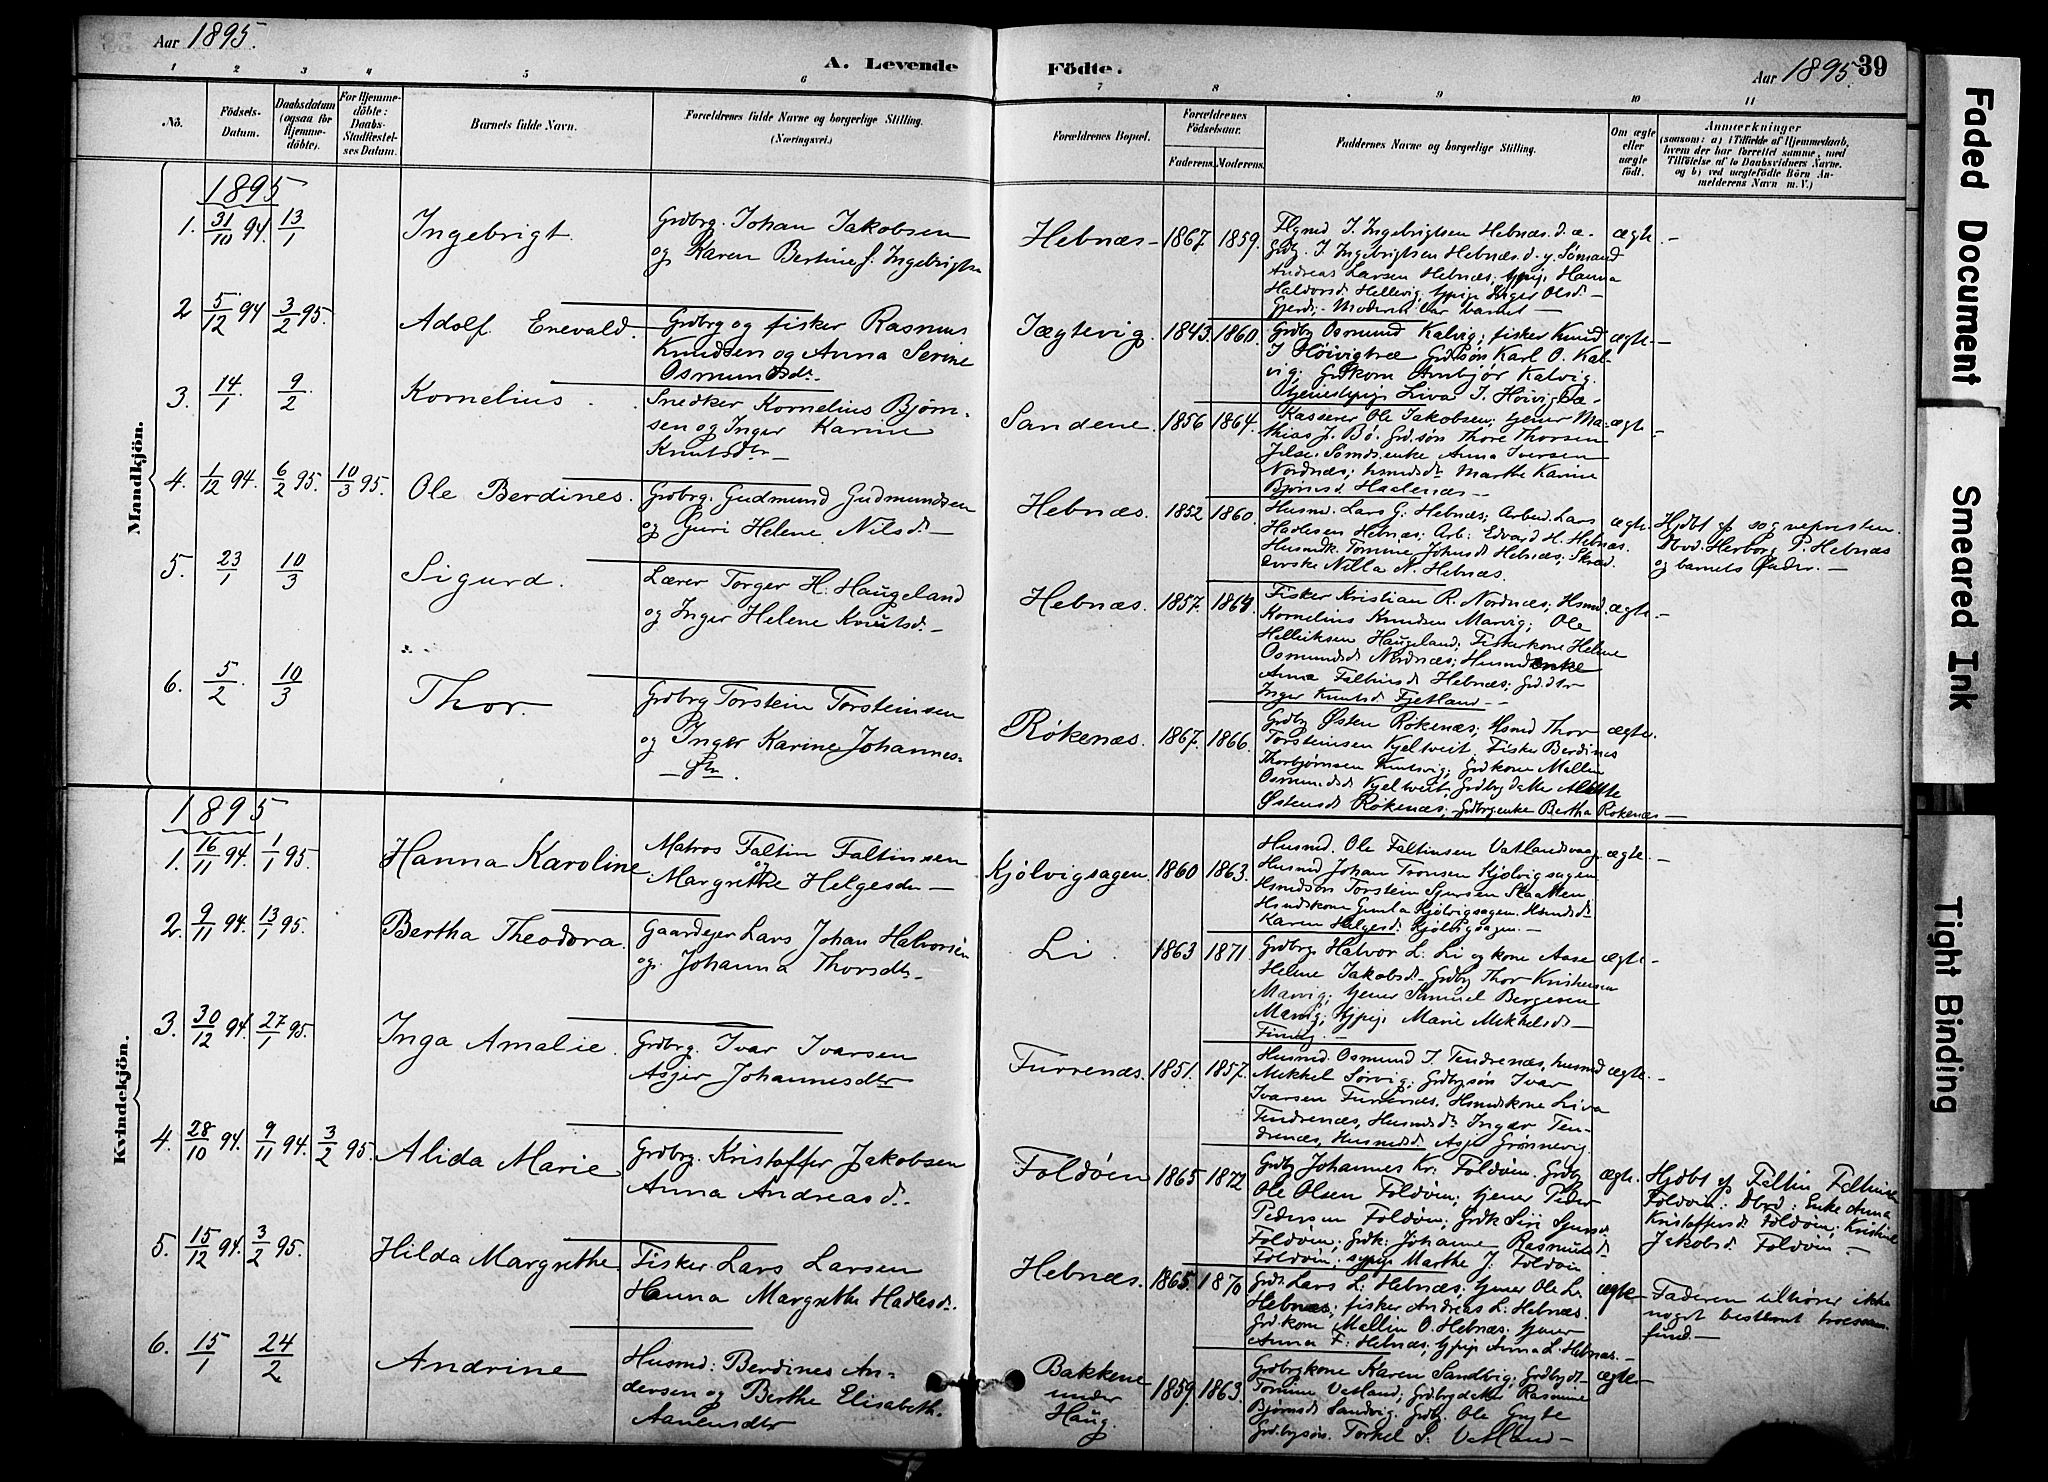 Aar 1895.
A. Levende
Födte.
Aar 1895.
39
1 2 3 4 5 6 7 8 9 10 11
No.
Födsels-Datum.
Daabsdatum (ogsaa for Hjemmedöbte).
For Hjemmedöbte: Daabs-Stadfæstelses Datum.
Barnets fulde Navn.
Forældrenes fulde Navne og borgerlige Stilling.
(Næringsvei.)
Forældrenes Bopæl.
Forældrenes Födselsaar.
Faderens. Moderens.
Faddernes Navne og borgerlige Stilling.
Om ægte eller uægte født.
Anmærkninger
(saasom: a) i Tilfælde af Hjemmedaab,
hvem der har forrettet samme, med
Tilföielse af to Daabsvidners Navne,
og b) ved uægtefödte Börn Anmelderens Navn m. V.)
Mandkjön.
1895
1. 31/10 94. 13/1
Ingebrigt.
Grdbrg. Johan Jakobsen
og Karen Bertine f. Ingebrigtsn
Hebnæs - 1867. 1859.
I. Ingebrigtsen Hebnæs d. æ.
Grdbg. I. Ingebrigtsen Hebnæs d. y. Sömand
Andreas Larsen Hebnæs; Hanna
Haldorsd. Hellevig, Inger Olsd. -
Moderen bar barnet -
ægte. -
2 5/12 94 3/2 95.
Adolf Enevald.
Grdbrg og fisker Rasmus
Knudsen og Anna Serine
Osmundsdr.
Jægtevig. 1843. 1860.
Grdbg Osmund Kalvig; fisker Knud
I Höivigtræ Grd.sön Karl O. Kalvig;
Grdkone Anbjör Kalvig.
Tjenestepige Liva I. Höivigtræ -
ægte. -
3. 14/1 9/2
Kornelius.
Snedker Kornelius Bjørnsen
og Inger Karine
Knutsdtr -
Sandene. 1856 1864.
Kasserer Ole Jakobsen; tjener Mathias
J. Bö. Grd.sön Thore Thorsen
Jelse. Sömds.enke Anna Iversen
Nordnæs; Marthe Karine
Björnsd. Haalenæs -
ægte. -
4. 1/12 94. 6/2 95. 10/3 95.
Ole Berdines.
Grdbrg. Gudmund Gudmundsen
og Guri Helene Nilsd. -
Hebnæs. 1852 1860.
Husmd. Lars G. Hebnæs; Arbeid. Lars
Hadlesen Hebnæs; Arb. Edvard H. Hebnæs.
Husmdk. Tomine Johnsd. Hebnæs;
Nilla N. Hebnæs.
ægte.
Hjdbt af sognepresten.
Dbvd. Herborg P. Hebnæs
og barnets Fader. -
5. 23/1 10/3
Sigurd.
Lærer Torger H. Haugeland
og Inger Helene Knutsd. -
Hebnæs. 1857. 1864.
Fisker Kristian R. Nordnæs; Hsmd.
Kornelius Knudsen Marvig; Ole
Helliksen Haugeland; Fiskerkone Helene
Osmundsd. Nordnæs; Husmdsenke
Anna Faltinsd. Hebnæs; Grd.dtr
Inger Knutsd. Fjetland. -
ægte. -
6. 5/2 10/3
Thor.
Grdbrg Torstein Torsteinsen
og Inger Karine Johannesdtr.
Rökenæs. 1867. 1866.
Grdbg Østen Rökenæs; Hsmd Thor
Torsteinsen Kjeltveit, Fisker Berdines
Thorbjørnsen Knutsvig; Grdkone Mallin
Osmundsd. Kjeltveit, Grdbrgdatter
Østensd. Rökenæs; Grdbrgenke Bertha Rökenæs -
ægte.
Kvindekjön.
1895
1. 16/11 94. 1/1 95.
Hanna Karoline
Matros Faltin Faltinsen
og Margrethe Helgesdtr -
Kjölvigsagen. 1860 1863.
Husmd. Ole Faltinsen Vatlandsvaag
Husmd Johan Tronsen Kjölvigsagen
Hsmdsön Torstein
Hsmdskone Gunla Kjölvigsagen. Hsmdsd.
Karen Helgesd. Kjölvigsagen. -
ægte. -
2. 9/11 94. 13/1 95.
Bertha Theodora.
Gaardejer Lars Johan Halvorsen
og Johanna Thorsdtr -
Li. 1863 1871.
Grdbrg. Halvor L. Li og kone Aase
Helene Jakobsd. - Grdbg Thor Kristensen
Marvig; tjener Samuel Bergesen
Marvig; Marie Mikkelsd. -
Finnøy. -
ægte -
3. 30/12 94. 27/1 95.
Inga Amalie.
Grdbrg. Ivar Ivarsen
Asjer Johannesdtr
Furrenæs. 1851. 1857.
Husmd. Osmund I. Tendrenæs, husmd
Mikkel Sörvig; Grdbg.sön Ivar
Ivarsen Furrenæs. Hsmdskone Liva
Tendrenæs, Husmdsd. Inger Tendrenæs,
Husmdsd. Asje Grønnevig
ægte. -
4. 28/10 94. 9/11 94. 3/2 95.
Alida Marie
Grdbrg. Kristoffer Jakobsen
Anna Andreasd. -
Foldöen 1865 1872
Grdbg Johannes Kr. Foldöen. Grdbg
Ole Olsen Foldöen; tjener Peder
Pedersen Foldöen; Grdk Siri
Foldöen; Grdk. Johanne Rasmusd.
Foldöen; sypige Marthe J. Foldöen
ægte.
Hjdbt af Faltin Faltinsen
Foldöen. Dbvd: Enke Anna
Kristoffersd. Foldöen; Kristine
Jakobsd. Foldöen -
5. 15/12 94. 3/2 95.
Hilda Margrethe
Fisker Lars Larsen
Hanna Margrethe Hadlesd.
Hebnæs. 1865. 1870
Lars L. Hebnæs; tjener Ole L.
Hebnæs; fisker Andreas L. Hebnæs.
Grd.kone Mallin O. Hebnæs.
Anna F. Hebnæs; Anna L. Hebnæs. -
ægte
Faderen tilhörer ikke
noget bestemt troessamfund. -
6. 15/1 24/2
Andrine
Husmd: Berdines Andersen
og Berthe Elisabeth
Aanensdtr
Bakkene
under
Haug. 1859. 1863.
Grdbrgkone Karen Sandvig; Grdbrgdt.
Tomine Vatland; Grdbrgdatter Rasmine
Björnsd. Sandvig. Grdbg. Ole
Grdbgsön. Torkel S. Vatland -
ægte -
Faded Document
Smeared Ink
Tight Binding